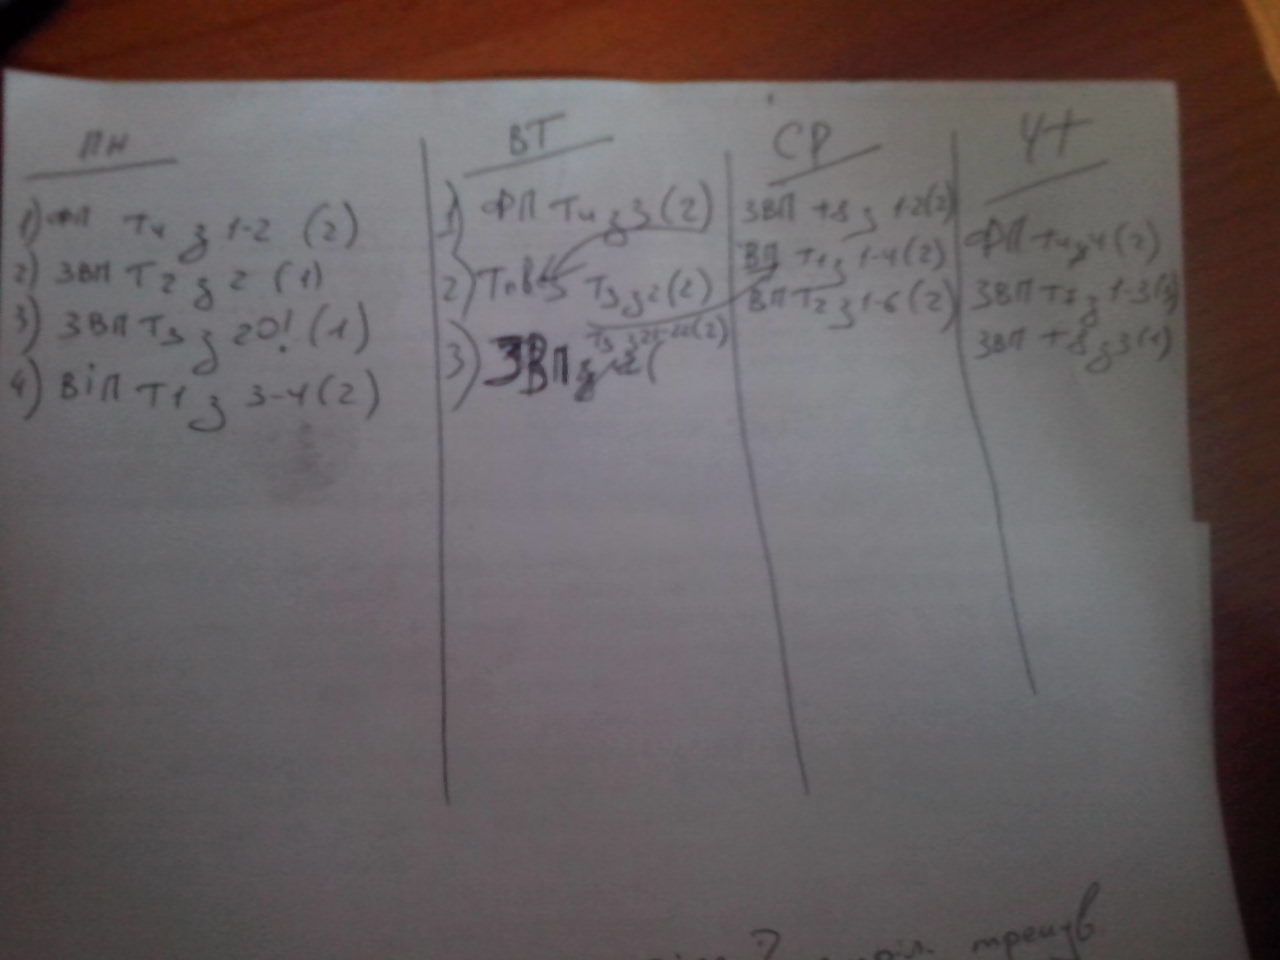 ПН
1) ФП Т4 з 1-2 (2)
2) ЗВП Т2 з 2 (1)
3) ЗВП Т3 з 20! (1)
4) ВіП Т1 з 3-4 (2)
ВТ
1) ФП Т4 з 3 (2)
2) Т3 з 2 (2)
3) ЗВП з 2 (
СР
ЗВП Т8 з 1-2 (2)
ВП Т1 з 1-4 (2)
ВП Т2 з 1-6 (2)
ЧТ
ФП Т4 з 4 (2)
ЗВП з 1-3
ЗВП Т8 з 3 (1)